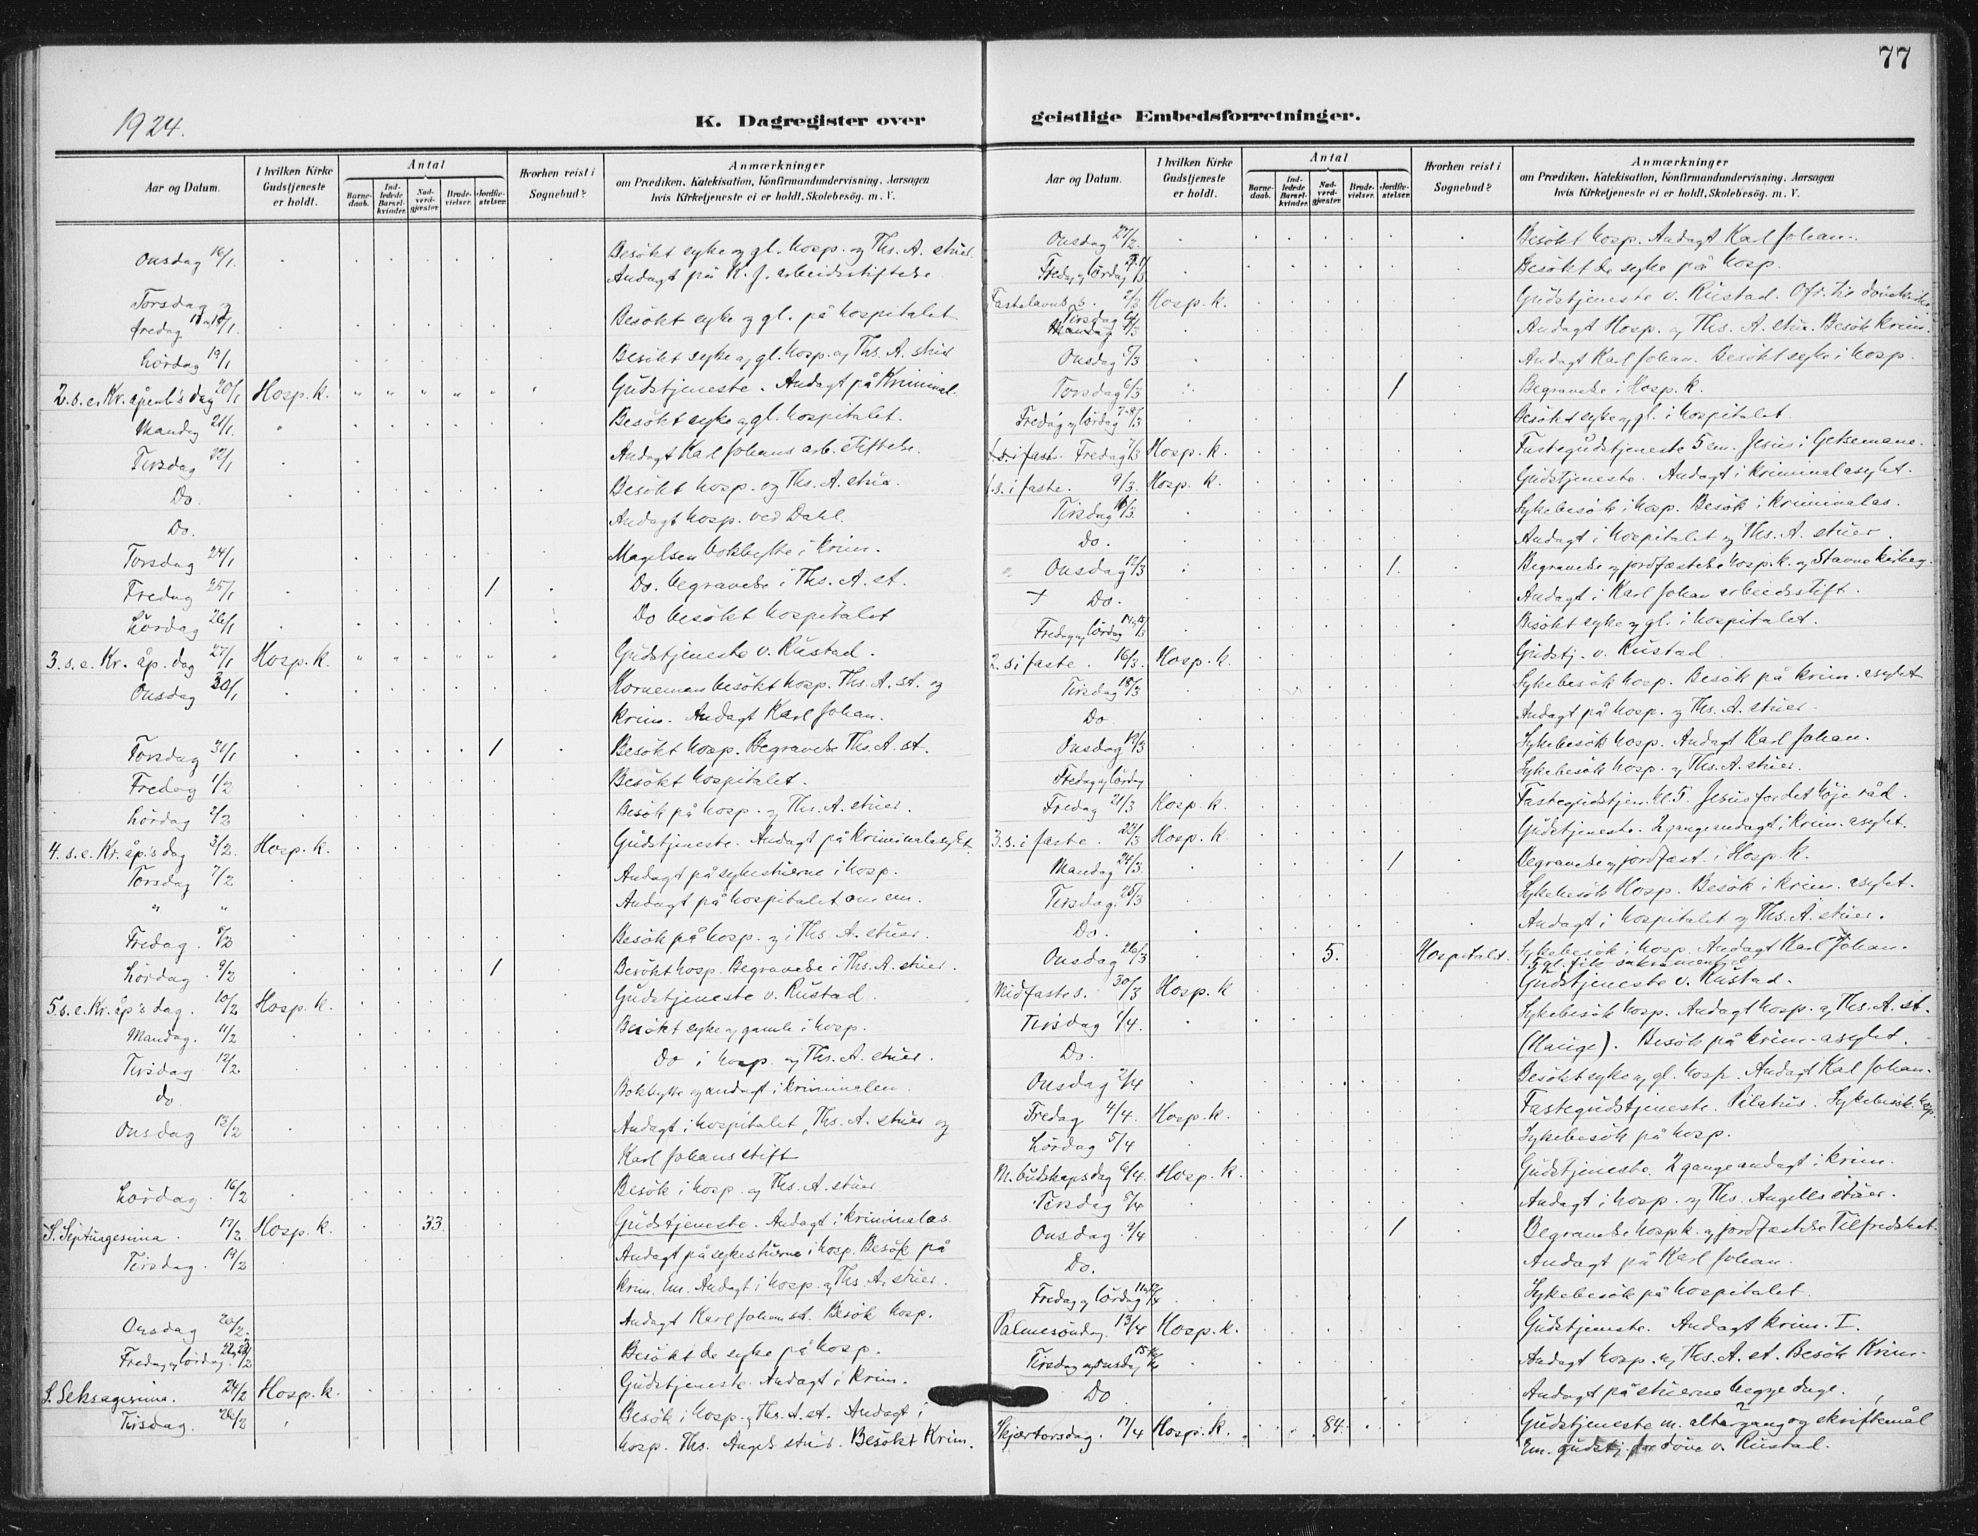 77
1924.
K. Dagregister over geistlige Embedsforretninger.
Aar og Datum.
I hvilken Kirke Gudstjeneste er holdt.
Antal
Barne-daab.
Ind-ledede Barsel-kvinder.
Nad-verd-gjester.
Brude-vielser.
Jordfæ-stelser.
Hvorhen reist i Sognebud?
Anmærkninger
om Prædiken, Katekisation, Konfirmandundervisning, Aarsagen
hvis Kirketjeneste ei er holdt, Skolebesøg, m. V.
Onsdag 16/1. Besökt syke og gl. hosp. og Ths. A. stuer.
Andagt på K. J. arbeidsstiftelse.
Torsdag og
fredag 17 og 18/1. Besökt syke og gl. på hospitalet
Lördag 19/1 Besökt syke og gl. hosp. og Ths. A. stuer
2. s. e. Kr. åpenb's dag 20/1 Hosp. k. Gudstjeneste. Andagt på Kriminal.
Mandag 21/1. Besökt syke og gl. hospitalet.
Tirsdag 22/1 Andagt Karl Johans arb. stiftelse.
Do. Besökt hosp. og Ths. A. stuer.
Do. Andagt hosp. ved Dahl.
Torsdag 24/1 Magelsen bokbytte i krim.
Fredag 25/1 1 Do. begravelse i Ths. A. st.
Lördag 26/1 Do besökt hospitalet
3. s. e. Kr. åp. dag 27/1 Hosp. k. Gudstjeneste v. Rustad.
Onsdag 30/1 Korneman besökt hosp. Ths. A. st. og
krim. Andagt Karl Johan.
Torsdag 31/1 1 Besökt hosp. Begravelse Ths. A. st.
Fredag 1/2 Besökt hospitalet.
Lördag 2/2 Besök på hosp. og Ths. A. stuer.
4. s. e. Kr. åp's dag 3/2. Hosp. k. Gudstjeneste. Andagt på kriminalasylet
Torsdag 7/2 Andagt på sykestuerne i hosp.
" " Andagt på hospitalet om em.
Fredag. 8/2 Besök på hosp. og i Ths. A. stuer
Lördag 9/2 1 Besökt hosp. Begravelse i Ths. A. stuer.
5. s. e. Kr. åp's dag. 10/2 Hosp. k. Gudstjeneste v. Rustad.
Mandag. 11/2 Besökt syke og gamle i hosp.
Tirsdag 12/2 Do i hosp. og Ths. A. stuer.
do. Bokbytte og andagt i kriminalen.
Onsdag 13/2 Andagt i hospitalet, Ths. A. stuer og
Karl Johans stift
Lördag. 16/2 Besök i hosp. og Ths. A. stuer
S. Septuagesima. 17/2 Hosp. k. 33. Gudstjeneste. Andagt i kriminalas.
Tirsdag. 19/2 Andagt på sykestuerne i hosp. Besök på
krim. Em. Andagt i hosp. og Ths. A. stuer.
Onsdag 20/2. Andagt Karl Johan st. Besök hosp.
Fredag og lördag 22 og 23/2 Besökt de syke på hosp.
S. Seksagesima. 24/2 Hosp. k. Gudstjeneste. Andagt i krim.
Tirsdag. 26/2 Besök i hosp. og Ths. A. st. Andagt i
hosp. Ths. Angels stuer. Besökt Krim.
Aar og Datum.
I hvilken Kirke Gudstjeneste er holdt.
Antal
Barne-daab.
Ind-ledede Barsel-kvinder.
Nad-verd-gjester.
Brude-vielser.
Jordfæ-stelser.
Hvorhen reist i Sognebud?
Anmærkninger
om Prædiken, Katekisation, Konfirmandundervisning, Aarsagen
hvis Kirketjeneste ei er holdt, Skolebesøg, m. V.
Onsdag 27/2. Besökt hosp. Andagt Karl Johan.
Fredag og lördag Besökt de syke på hosp.
Fastelavns s. 2/3 Hosp. k. Gudstjeneste v. Rustad. Ofr. til
Tirsdag 4/3 Andagt Hosp. og Ths. A. stuer. Besök krim.
Onsdag 5/3 Andagt Karl Johan. Besökt syke i hosp.
Torsdag 6/3 1 Begravelse i Hosp. k.
Fredag og lördag 7-8/3 Besökt syke og gl. i hospitalet
Fredag 7/3 Hosp. k. Fastegudstjeneste 5 em. Jesus i Getsemane.
1. s. i faste. 9/3. Hosp. k. Gudstjeneste. Andagt i kriminalasylet.
Tirsdag 11/3. Sykebesök i hosp. Besök i kriminalas.
Do. Andagt i hospitalet og Ths. A. stuer.
" Onsdag 12/3 1. Begravelse og jordfæstelse hosp. k. og Stavne kirkeg.
+ Do. Andagt i Karl Johan arbeidsstift.
Fredag og lördag 14 og 15/3 Besökt syke og gl. i hospitalet.
2. s. i faste. 16/3. Hosp. k. Gudstj. v. Rustad
Tirsdag 18/3 Sykebesök hosp. Besök på krim. asylet
Do Andagt på hosp. og Ths. A. stuer.
Onsdag 19/3 Sykebesök hosp. Andagt Karl Johan.
Fredag og lördag Sykebesök hosp. og Ths. A. stuer.
Fredag 21/3 Hosp. k. Fastegudstjen. kl 5. Jesus for det höie råd.
3. s. i faste. 23/3 Hosp. k Gudstjeneste. 2 gange andagt i krim. asylet.
Mandag 24/3. 1 Begravelse og jordfæst. i Hosp. k.
Tirsdag. 25/3 Sykebesök Hosp. Besök i krim. asylet.
Do. Andagt i hospitalet og Ths. A. stuer.
Onsdag 26/3 5. Hospitalet. Sykebesök i hosp. Andagt Karl Johan.
5 gl. fik sakramentet
Midfastes. 30/3 Hosp. k Gudstjeneste v. Rustad.
Tirsdag 1/4. Sykebesök hosp. Andagt hosp. og Ths. A. st.
Do. (Hauge). Besök på krim. asylet.
Onsdag 2/4 Besökt syke og gl. hosp. Andagt Karl Johan.
Fredag 4/4. Hosp. k. Fastegudstjeneste. Pilatus. Sykebesök hosp.
Lördag 5/4 Sykebesök på hosp.
M. budskapsdag 6/4. Hosp. k. Gudstjeneste. 2 gange andagt i krim.
Tirsdag 8/4 Andagt i hosp. og Ths. Angells stuer.
Onsdag. 9/4 1 Begravelse hosp k. og jordfæstelse Tilfredshet.
Do. Andagt på Karl Johan.
Fredag og lördag 11 og 12/4 Sykebesök på hospitalet.
Palmesöndag. 13/4 Hosp. k. Gudstjeneste. Andagt krim. I.
Tirsdag og onsdag 15 16/4 Andagt hosp. og Ths. A. st. Besök Krim.
Do Andagt på stuerne begge dage.
Skjærtorsdag. 17/4 Hosp. k. 84. Gudstjeneste m. altergang og skriftemål
Em. gudstj. for döve v. Rustad.